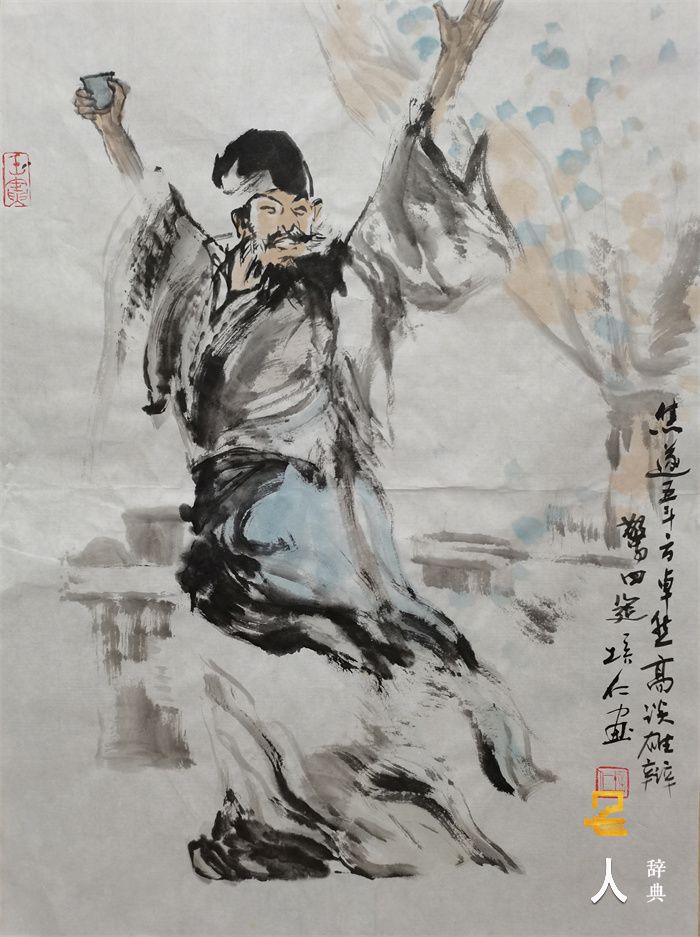 焦遂五斗方卓然高谈雄辩
驚四筵 仁画
人
辞典